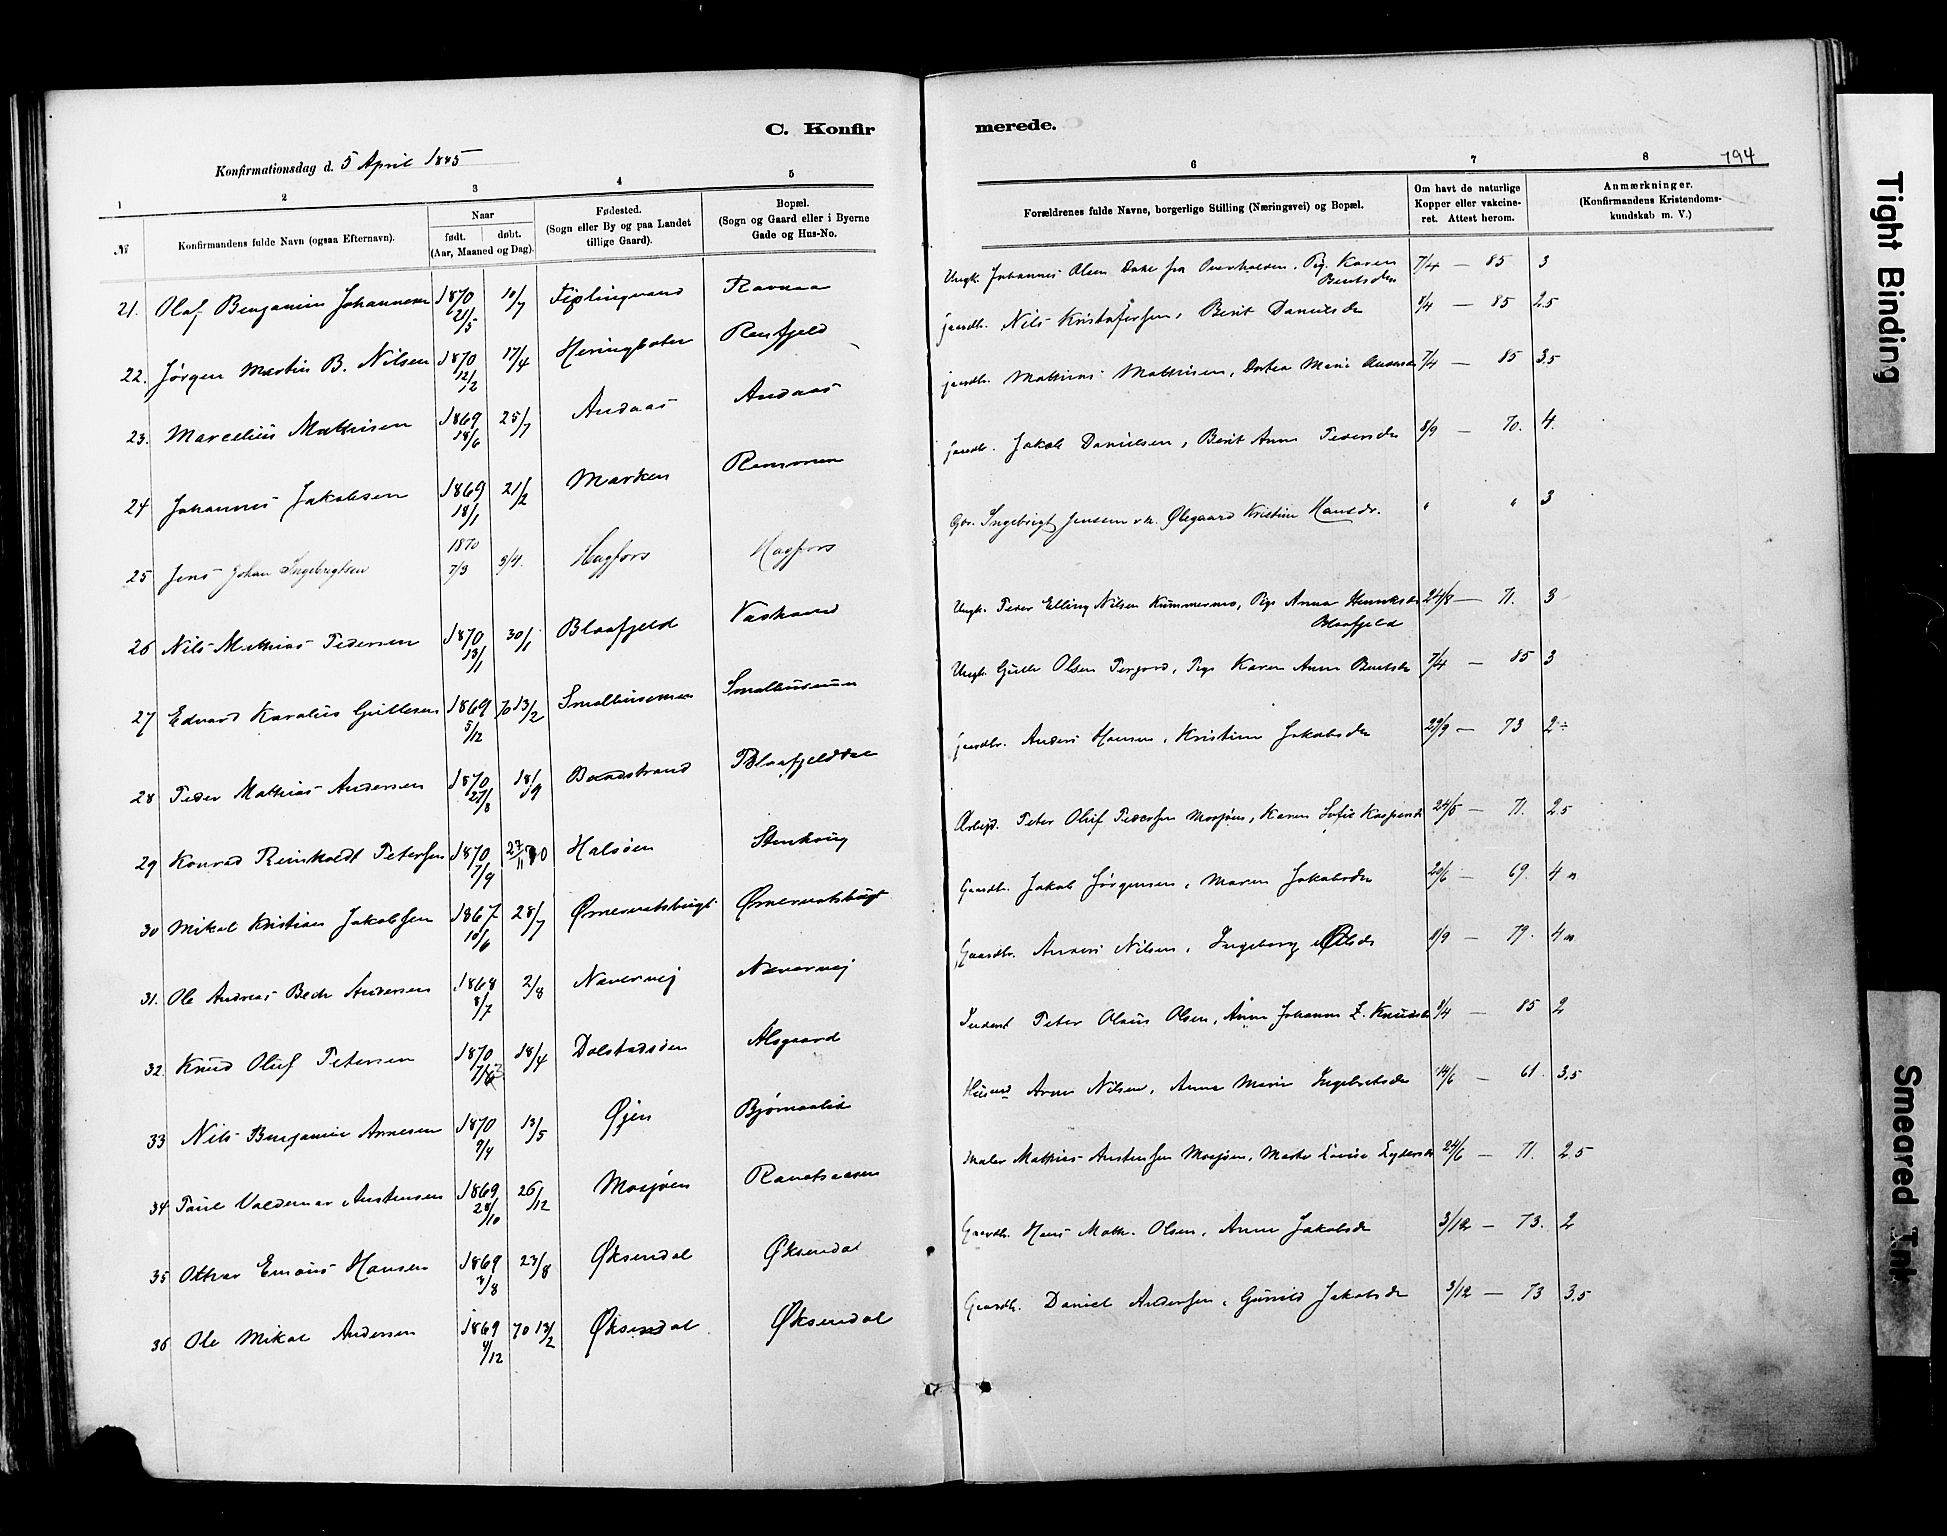 C. Konfirmerede.
Konfirmationsdag d. 5 April 1885
194
1 2 3 4 5 6 7 8
№
Konfirmandens fulde Navn (ogsaa Efternavn).
Naar
født. døbt.
(Aar, Maaned og Dag).
Fødested.
(Sogn eller By og paa Landet
tillige Gaard).
Bopæl.
(Sogn og Gaard eller i Byerne
Gade og Hus-No.
Forældrenes fulde Navne, borgerlige Stilling (Næringsvei) og Bopæl.
Om havt de naturlige
Kopper eller vakcine-
ret. Attest herom.
Anmærkninger.
(Konfirmandens Kristendoms-
kundskab m. V.)
21. Olaf Benjamin Johannesen 1870 21/5 10/7 Fiplingvand Ravnaa Ungk. Johannes Olsen Dahl fra Overhalden, Pig. Karen Bentsdr 7/4 — 85 3
22. Jørgen Martin B. Nilsen 1870 12/2 17/4 Heringboten Renfjeld gaardbr. Nils Kristofersen, Berit Danielsdr 8/4 — 85 2.5
23. Marcelius Mathisen 1869 18/6 25/7 Andaas Andaas gaardbr. Mathias Mathisen, Dortea Marie Andersdr 7/4 — 85 3.5
24 Johannes Jakobsen 1869 18/1 21/2 Marken gaardbr. Jakob Danielsen, Berit Anna Pedersdr 8/9 — 70. 4.
25 Jens Johan Ingebrigtsen 1870 7/3 3/4. Hagfors Hagfors Gbr. Ingebrigt Jensen o.h. Ølegaard Kristine Hansdr. " " 3
26 Nils Mathias Pedersen 1870 13/1 30/1 Blaafjeld Ungk. Peder Elling Nilsen Kummernes, Pige Anna Henriksdr Blaafjeld 24/8 — 71. 3
27 Edvard Karolius Guttesen 1869 5/12 70 13/2 Smalhusmoen Smalhusmoen Ungk. Gutte Olsen Pige Karen Anna Bentsdr 7/4 — 85 3
28 Peder Mathias Andersen 1870 27/8 18/9 Baadstrand Blaafjelddal gaardbr. Anders Hansen, Kristine Jakobsdr 29/9 — 73 2÷
29 Konrad Reinholdt Petersen 1870 7/9 27/11 70 Halsøen Arbejd. Peter Oluf Pedersen Mosjøen, Karen Sofie Kaspersdr 24/5 — 71. 2.5
30 Mikal Kristian Jakobsen 1867 10/6 28/7 Ørnevatsbugt Ørnevatsbugt Gaardbr. Jakob Jørgensen, Maren Jakobsdr 20/6 — 69. 4
31. Ole Andreas Bech Andersen 1868 8/7 2/8 Nævervej Nævervej Gaardbr. Anders Nilsen, Ingeborg Olsdr 8/9 — 79. 4
32. Knud Oluf Petersen 1870 18/4 Dolstadsøen Alsgaard Inderst Peter Olaus Olsen, Anne Johanna Z. Knudsdr 8/4 — 85 2
33 Nils Benjamin Arnesen 1870 9/4 13/5 Øjen Bjørnaalid Husmd Arne Nilsen, Anna Marie Ingebretsdr 14/6 — 61. 3.5
34 Paul Valdemar Austensen 1869 28/10 26/12 Mosjøen Maler Mathias Austensen Mosjøen, Marte Lovise Lydersdr 24/6 — 71. 2.5
35 Othar Emaus Hansen 1869 3/8 23/8 Øksendal Øksendal Gaardbr. Hans Math. Olsen, Anne Jakobsdr 3/12 — 73. 2
36 Ole Mikal Andersen 1869 4/12 70 13/2 Øksendal Øksendal Gaardbr. Daniel Andersen, Gunild Jakobsdr 3/12 — 73 3.5
Tight Binding
Smeared Ink